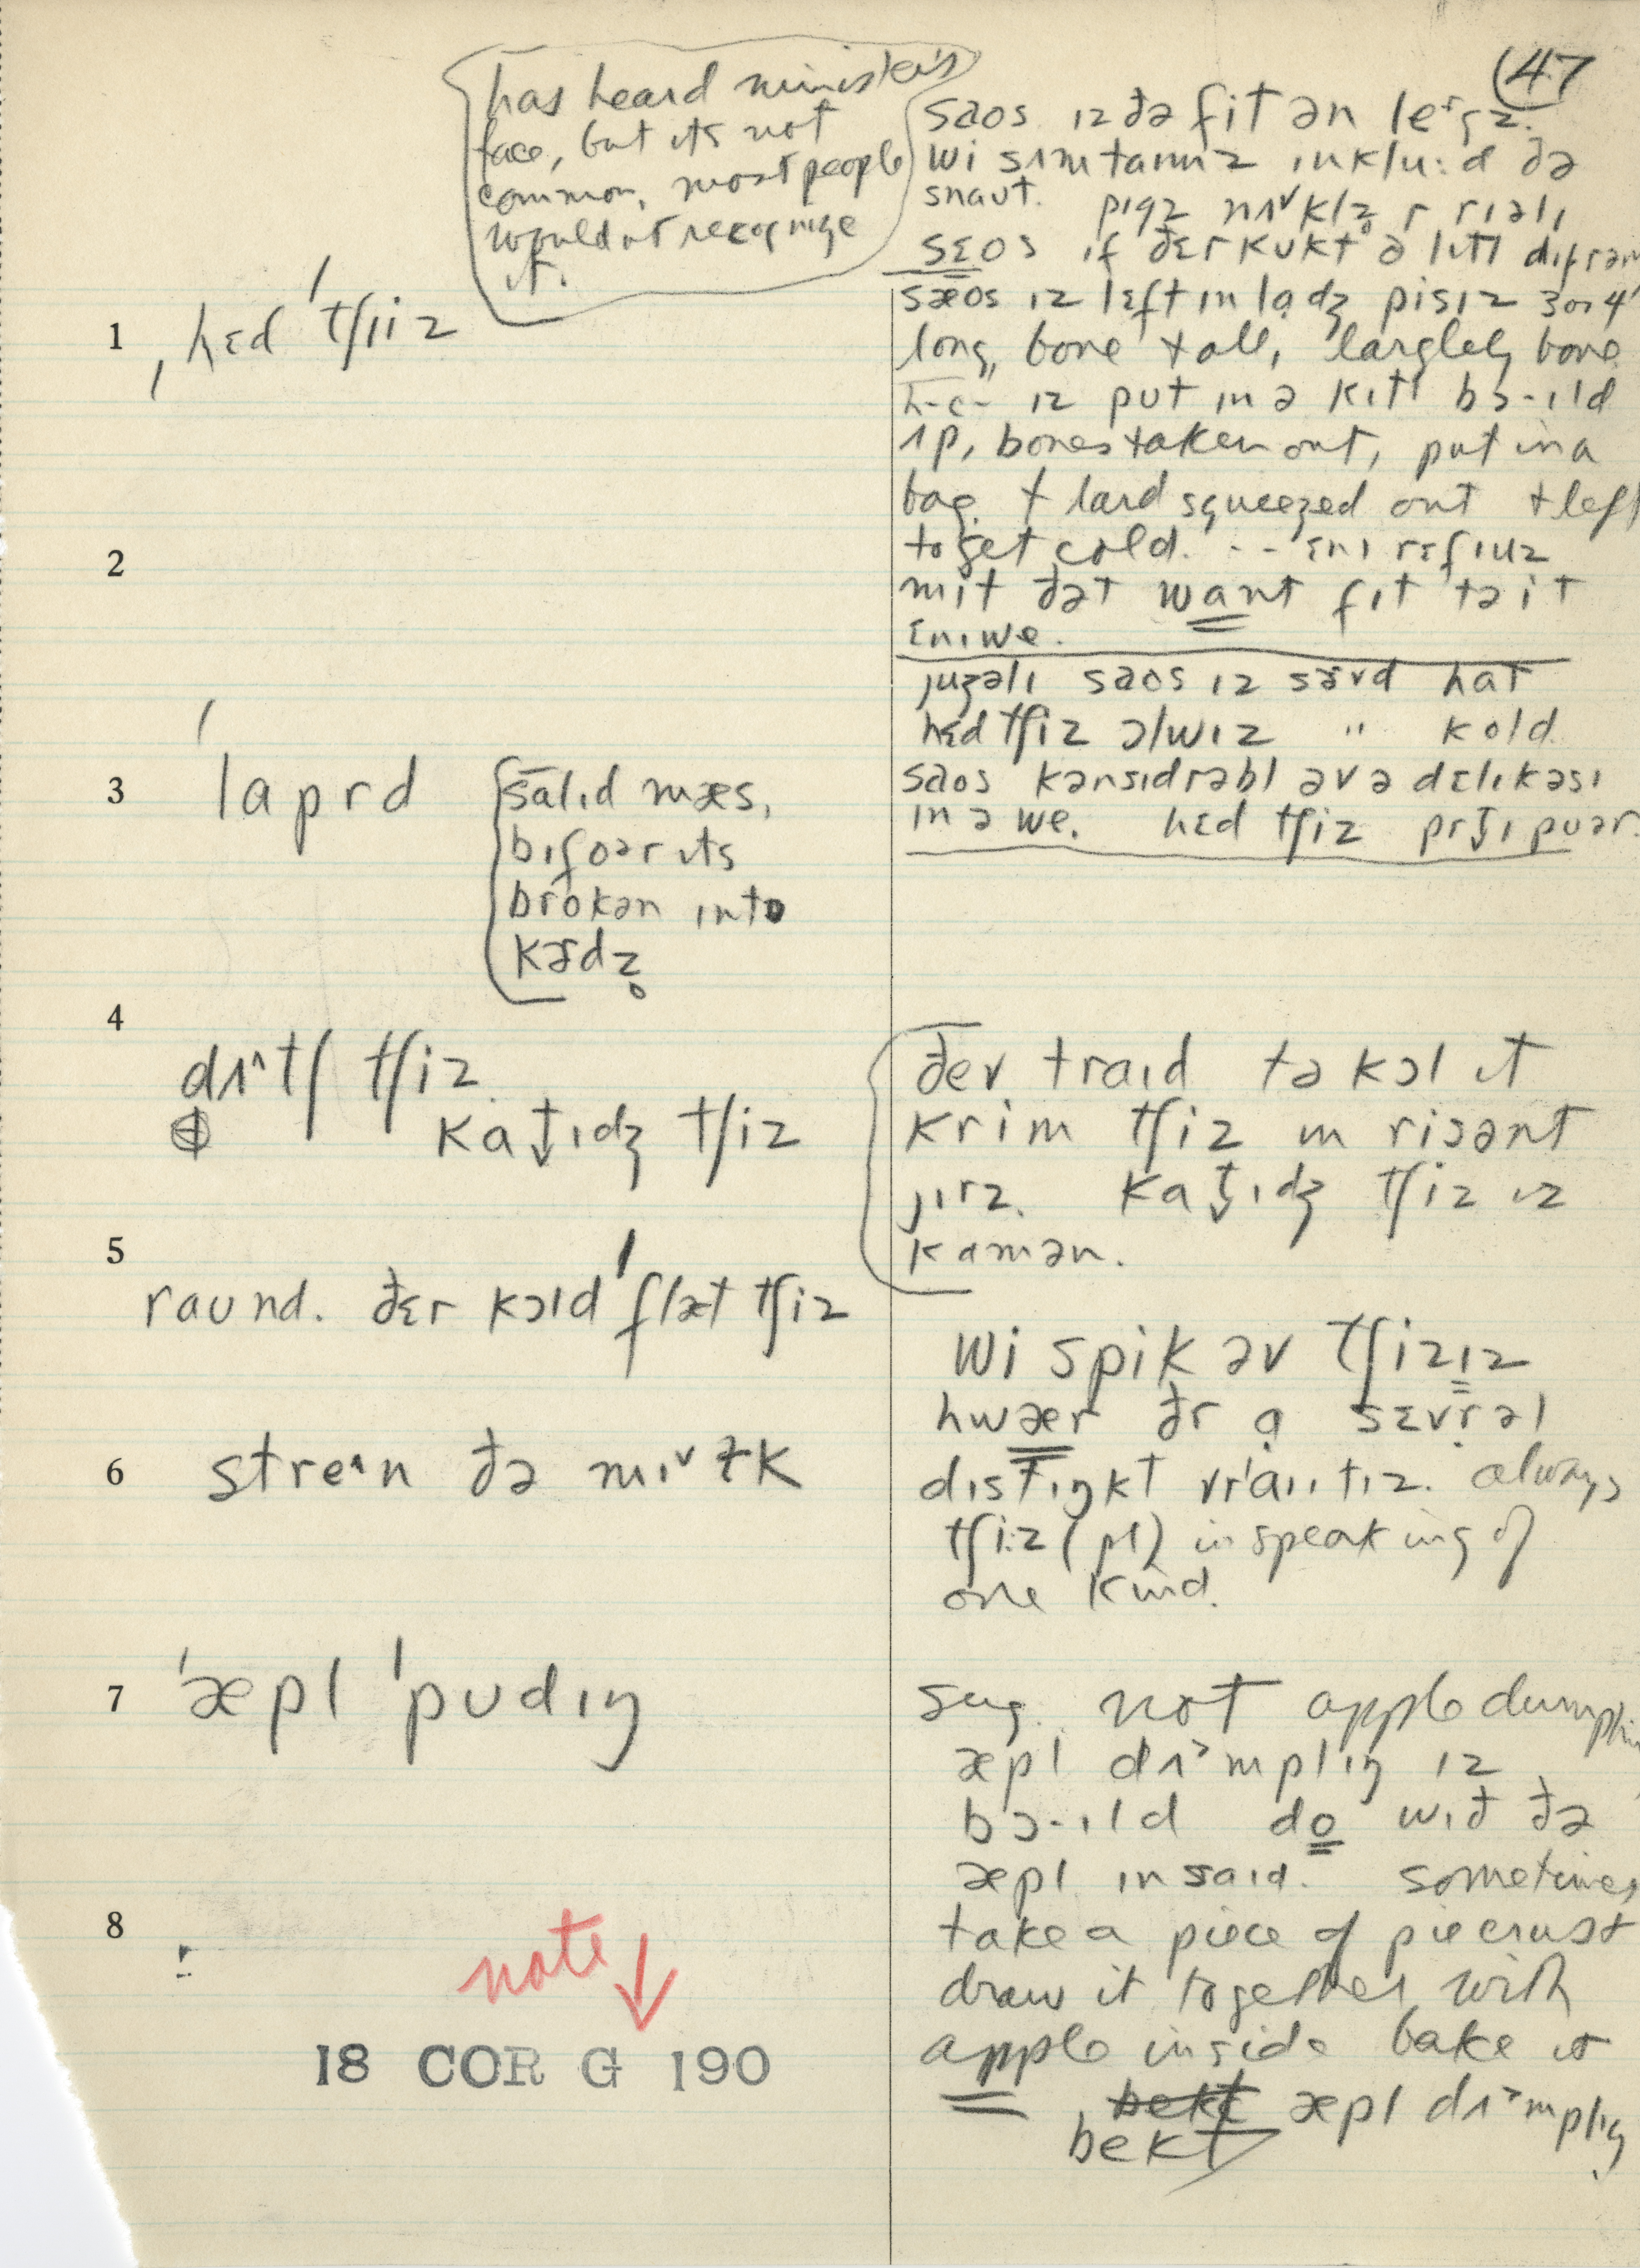 47
has heard minister's
face, but its not
common, most people
would n't recognize
it.
saos ɪz ðə fit ən leᵊgz.
wi sɪmtaɪmz ɪnklu:d ðə
snaʊt. pɪgz nʌˇklz r rɪəlɪ
sɛos if ðɛr kʊkt ə lɪtl
sæos ɪz lɛft ɪn lɑdʒ pisɪz 3 or 4"
long, bone & all, largely bone
h-c- ɪz pʊt ɪn ə kɪtl bɔ-ɪld
ʌp, bones taken out, put in a
bag & lard squeezed out & left
to get cold. -- ɛnɪ rɛfɪuz
mit ðət want fɪt tə it
ɛnɪwe.
juʒəlɪ saos ɪz sɜvd hat
hɛd tʃiz ɔlwɪz " kold.
saos kənsɪdrəbl əv ə dɛlɪkəsɪ
ɪn ə we. hɛd tʃiz prɪt̬ɪ pʊər.
1 ˌhɛd ˈtʃiiz
2
3 ˈlaprd
salɪd mæs,
bɪfoər ɪts
brokən ɪnto
kɜdz̥
4 dʌ^tʃ tʃiz.
kat̬ɪdʒ tʃiz
ðev traɪd tə kɔl ɪt
krim tʃiz ɪn risənt
jɪrz. kat̬ɪdʒ tʃiz ɪz
kamən.
5 raʊnd. ðɛr kɔld ˈflæt tʃiz
wi spik əv tʃizɪz
hwær ðr ɑ sɛvrəl
dɪstɪŋkt vrˈaɪɪtɪz. always
tʃi:z (pl) in speaking of
one kind.
6 stre^n ðə mɪˇɫk
7 ˈæpl ˈpʊdɪŋ
sug. not apple dumpling
æpl dʌ˃mplɪŋ ɪz
bɔ-ɪld do wɪð ðə
æpl ɪnsaɪd. sometimes
take a piece of piecrust
draw it together with
apple inside bake it
bekt æpl dʌ˃mplɪŋ
bekt
8
note ↓
18 COR G 190